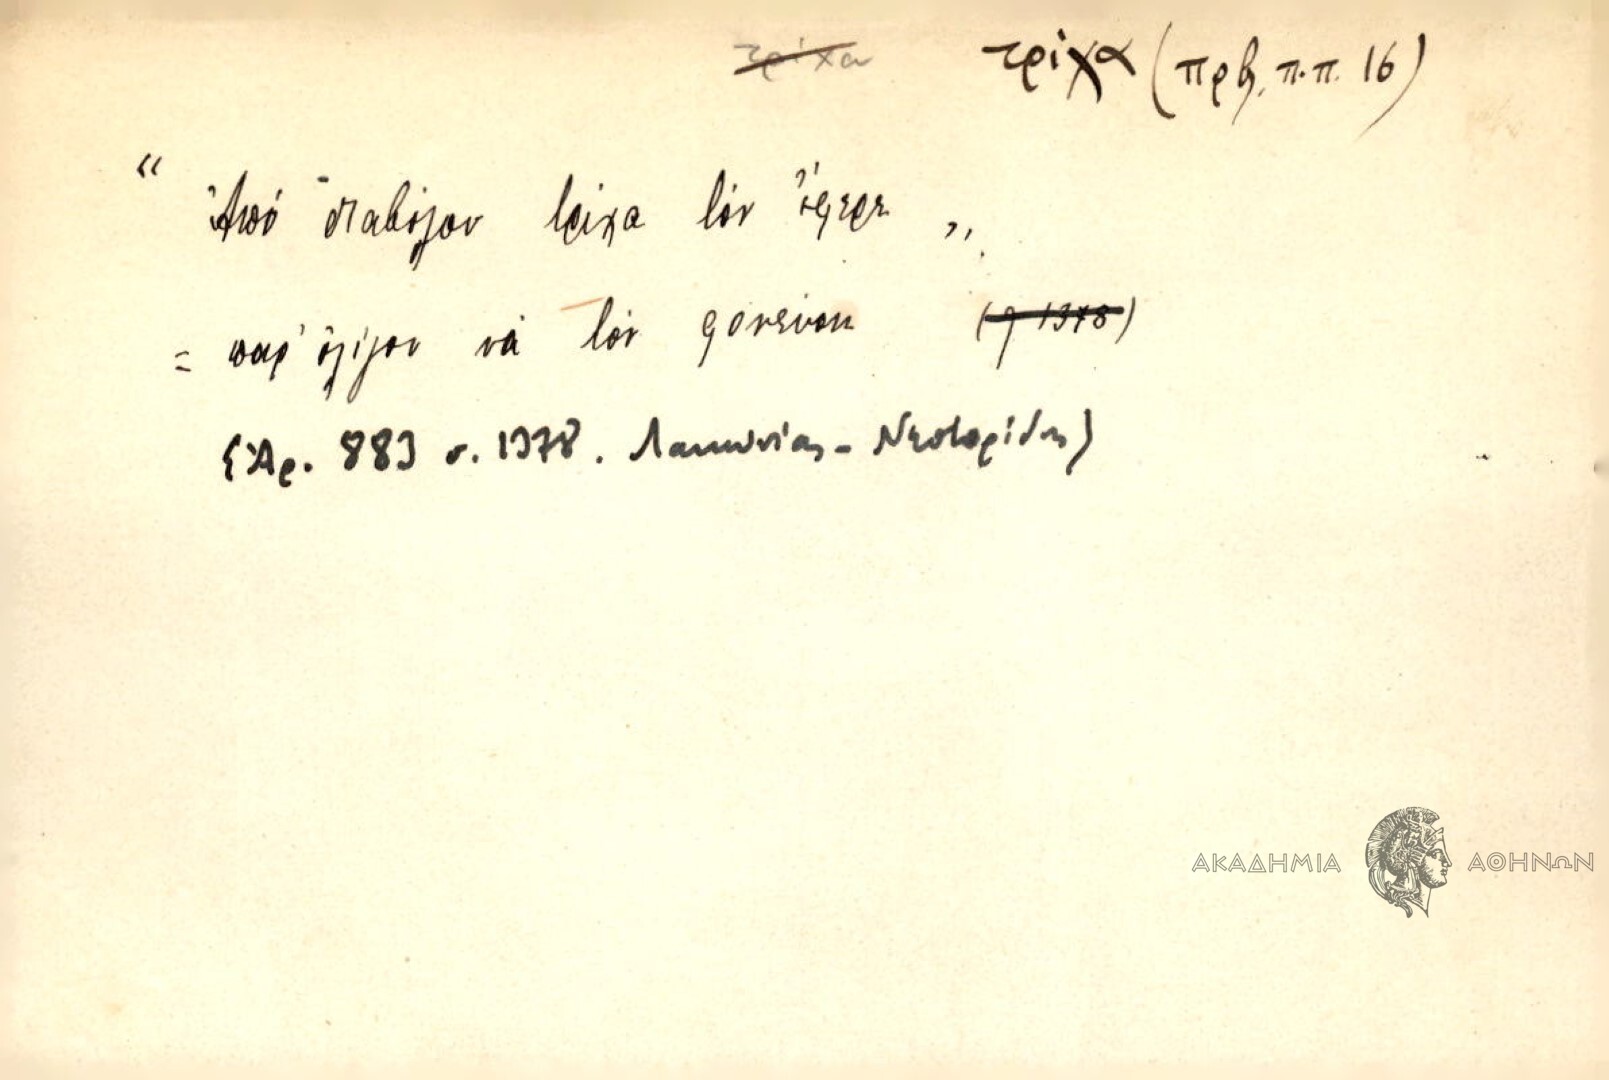 τρίχα τρίχα (πρβ. π.π. 16)
“ Ἀπό διαβόλου τρίχα τόν ἔφερε „
= παρ' ὀλίγον νά τόν φονεύση (σ 1378)
(Ἀρ. 883 σ. 1378. Λακωνίας - Νεστορίδης)
ΑΚΑΔΗΜΙΑ ΑΘΗΝΩΝ